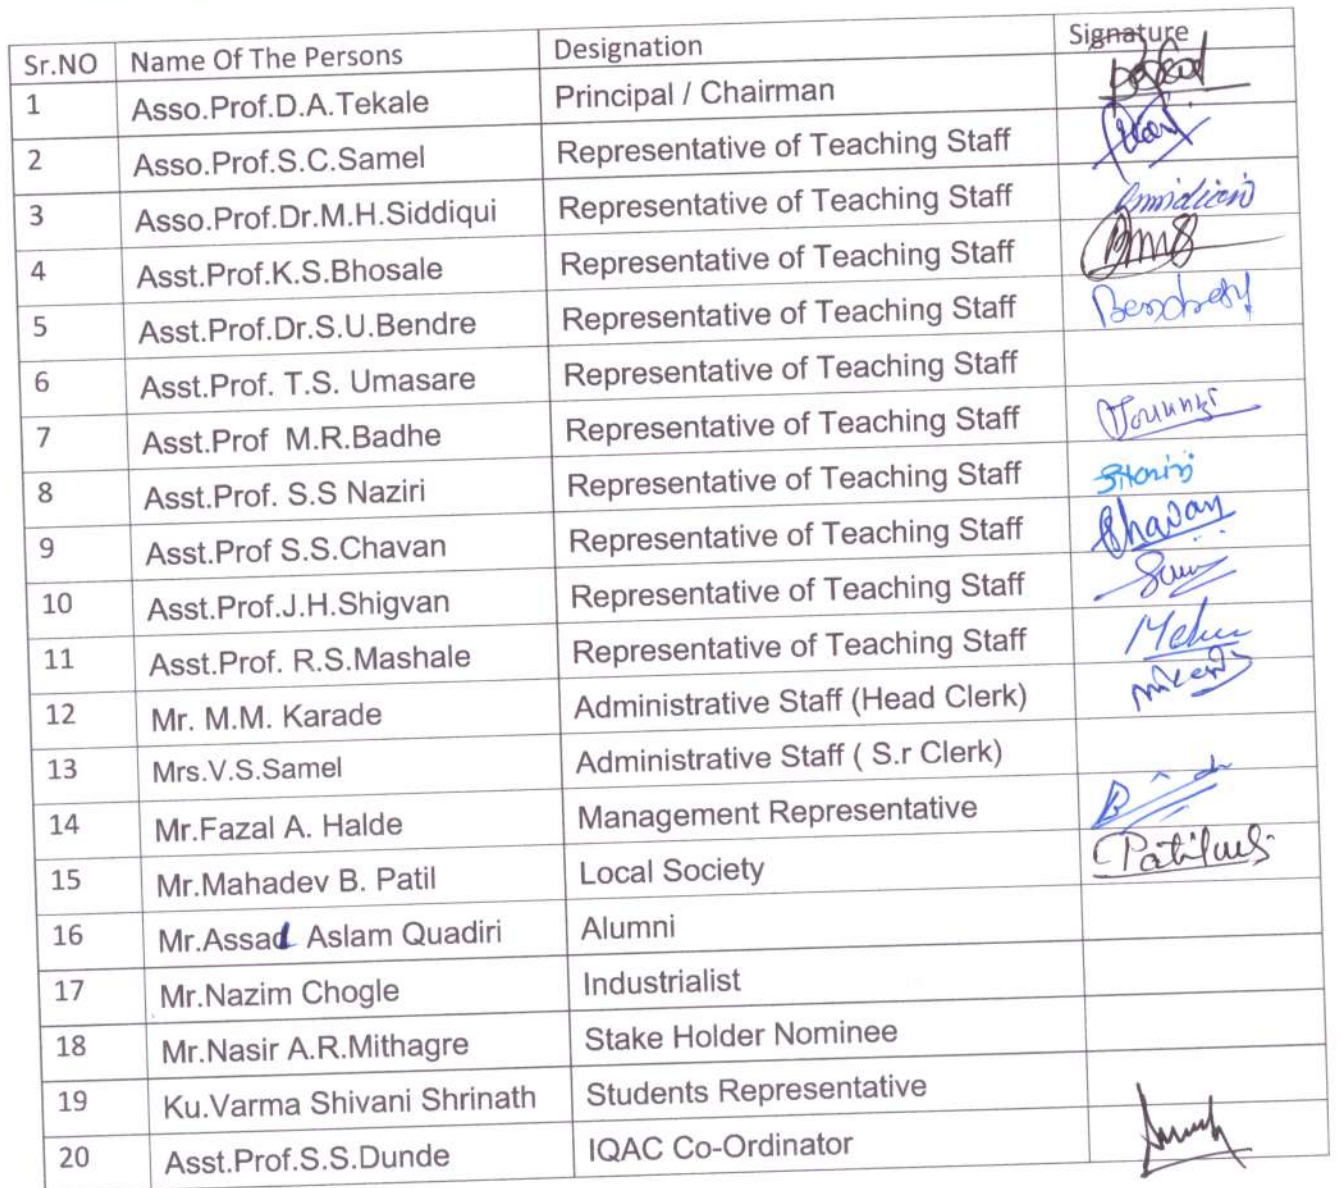 Sr.NO Name Of The Persons Designation Signature
1 Asso.Prof.D.A.Tekale Principal / Chairman
2 Asso.Prof.S.C.Samel Representative of Teaching Staff
3 Asso.Prof.Dr.M.H.Siddiqui Representative of Teaching Staff
4 Asst.Prof.K.S.Bhosale Representative of Teaching Staff
5 Asst.Prof.Dr.S.U.Bendre Representative of Teaching Staff
6 Asst.Prof. T.S. Umasare Representative of Teaching Staff
7 Asst.Prof M.R.Badhe Representative of Teaching Staff
8 Asst.Prof. S.S Naziri Representative of Teaching Staff
9 Asst.Prof S.S.Chavan Representative of Teaching Staff Chavan
10 Asst.Prof.J.H.Shigvan Representative of Teaching Staff
11 Asst.Prof. R.S.Mashale Representative of Teaching Staff
12 Mr. M.M. Karade Administrative Staff (Head Clerk)
13 Mrs.V.S.Samel Administrative Staff ( S.r Clerk)
14 Mr.Fazal A. Halde Management Representative
15 Mr.Mahadev B. Patil Local Society
16 Mr.Assad Aslam Quadiri Alumni
17 Mr.Nazim Chogle Industrialist
18 Mr.Nasir A.R.Mithagre Stake Holder Nominee
19 Ku.Varma Shivani Shrinath Students Representative
20 Asst.Prof.S.S.Dunde IQAC Co-Ordinator